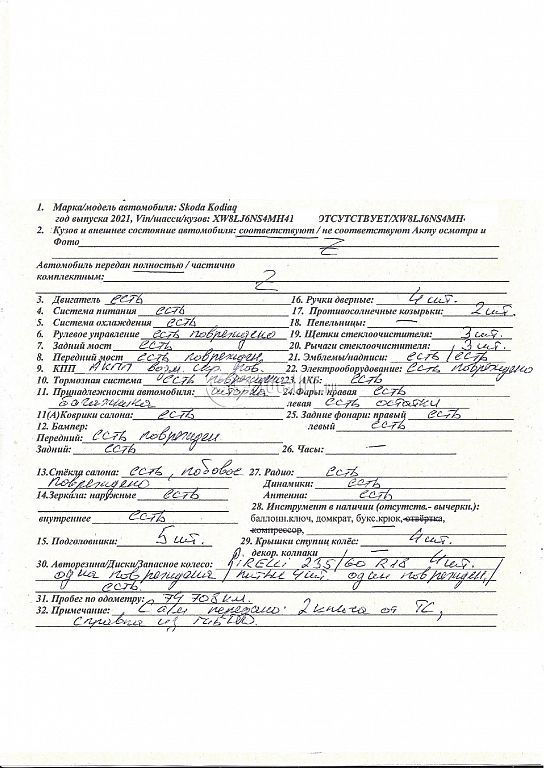 1. Марка/модель автомобиля: Skoda Kodiaq
год выпуска 2021, Vin/шасси/кузов: XW8LJ6NS4MH41 ОТСУТСТВУЕТ/XW8LJ6NS4MH
2. Кузов и внешнее состояние автомобиля: соответствуют / не соответствуют Акту осмотра и
Фото
Автомобиль передан полностью / частично
комплектным:
3. Двигатель есть 16. Ручки дверные: 4 шт.
4. Система питания есть 17. Противосолнечные козырьки: 2 шт.
5. Система охлаждения есть 18. Пепельницы: —
6. Рулевое управление есть повреждено 19. Щетки стеклоочистителя: 3 шт.
7. Задний мост есть 20. Рычаги стеклоочистителя: 3 шт.
8. Передний мост есть поврежден 21. Эмблемы/надписи: есть / есть
9. КПП АКПП возм. скр. деф. 22. Электрооборудование: есть повреждено
10. Тормозная система есть повреждена 23. АКБ: есть
11. Принадлежности автомобиля: шторка 24. Фары: правая есть
багажника левая есть остатки
11(А)Коврики салона: есть 25. Задние фонари: правый есть
12. Бампер: левый есть
Передний: есть поврежден
Задний: есть 26. Часы: —
13.Стёкла салона: есть, лобовое 27. Радио: есть
повреждено Динамики: есть
14.Зеркала: наружные есть Антенна: есть
28. Инструмент в наличии (отсутств.- вычеркн.):
внутреннее есть баллонн.ключ, домкрат, букс.крюк, отвёртка,
компрессор,
15. Подголовники: 5 шт. 29. Крышки ступиц колёс: 4 шт.
декор. колпаки —
30. Авторезина/Диски/Запасное колесо: PIRELLI 235/60 R18 4 шт.
одна повреждена / литые 4 шт. один поврежден /
есть
31. Пробег по одометру: 74 708 км.
32. Примечание: С а/м передано: 2 ключа от ТС,
справка из ГИБДД.